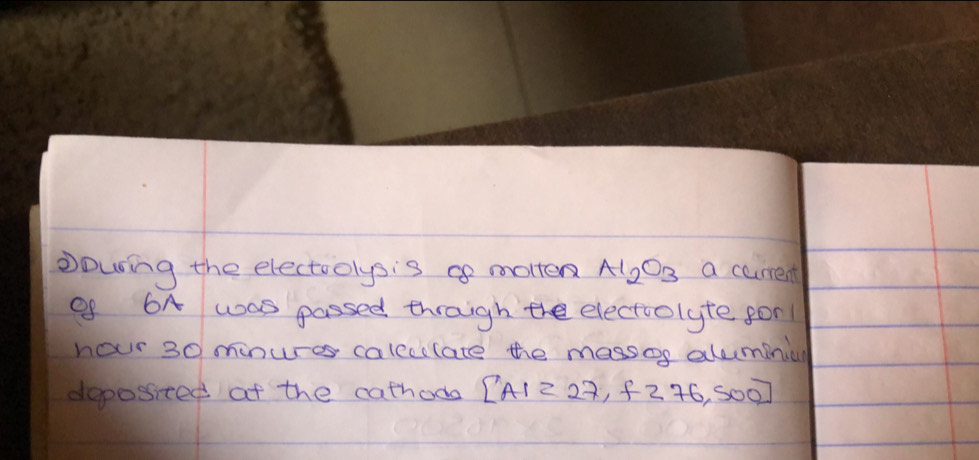 2) During the electrolysis of molten Al2O3 a current
of 6A was passed through the electrolyte for 1
hour 30 minutes calculate the mass of aluminium
deposited at the cathode [Al = 27, f = 76,500]